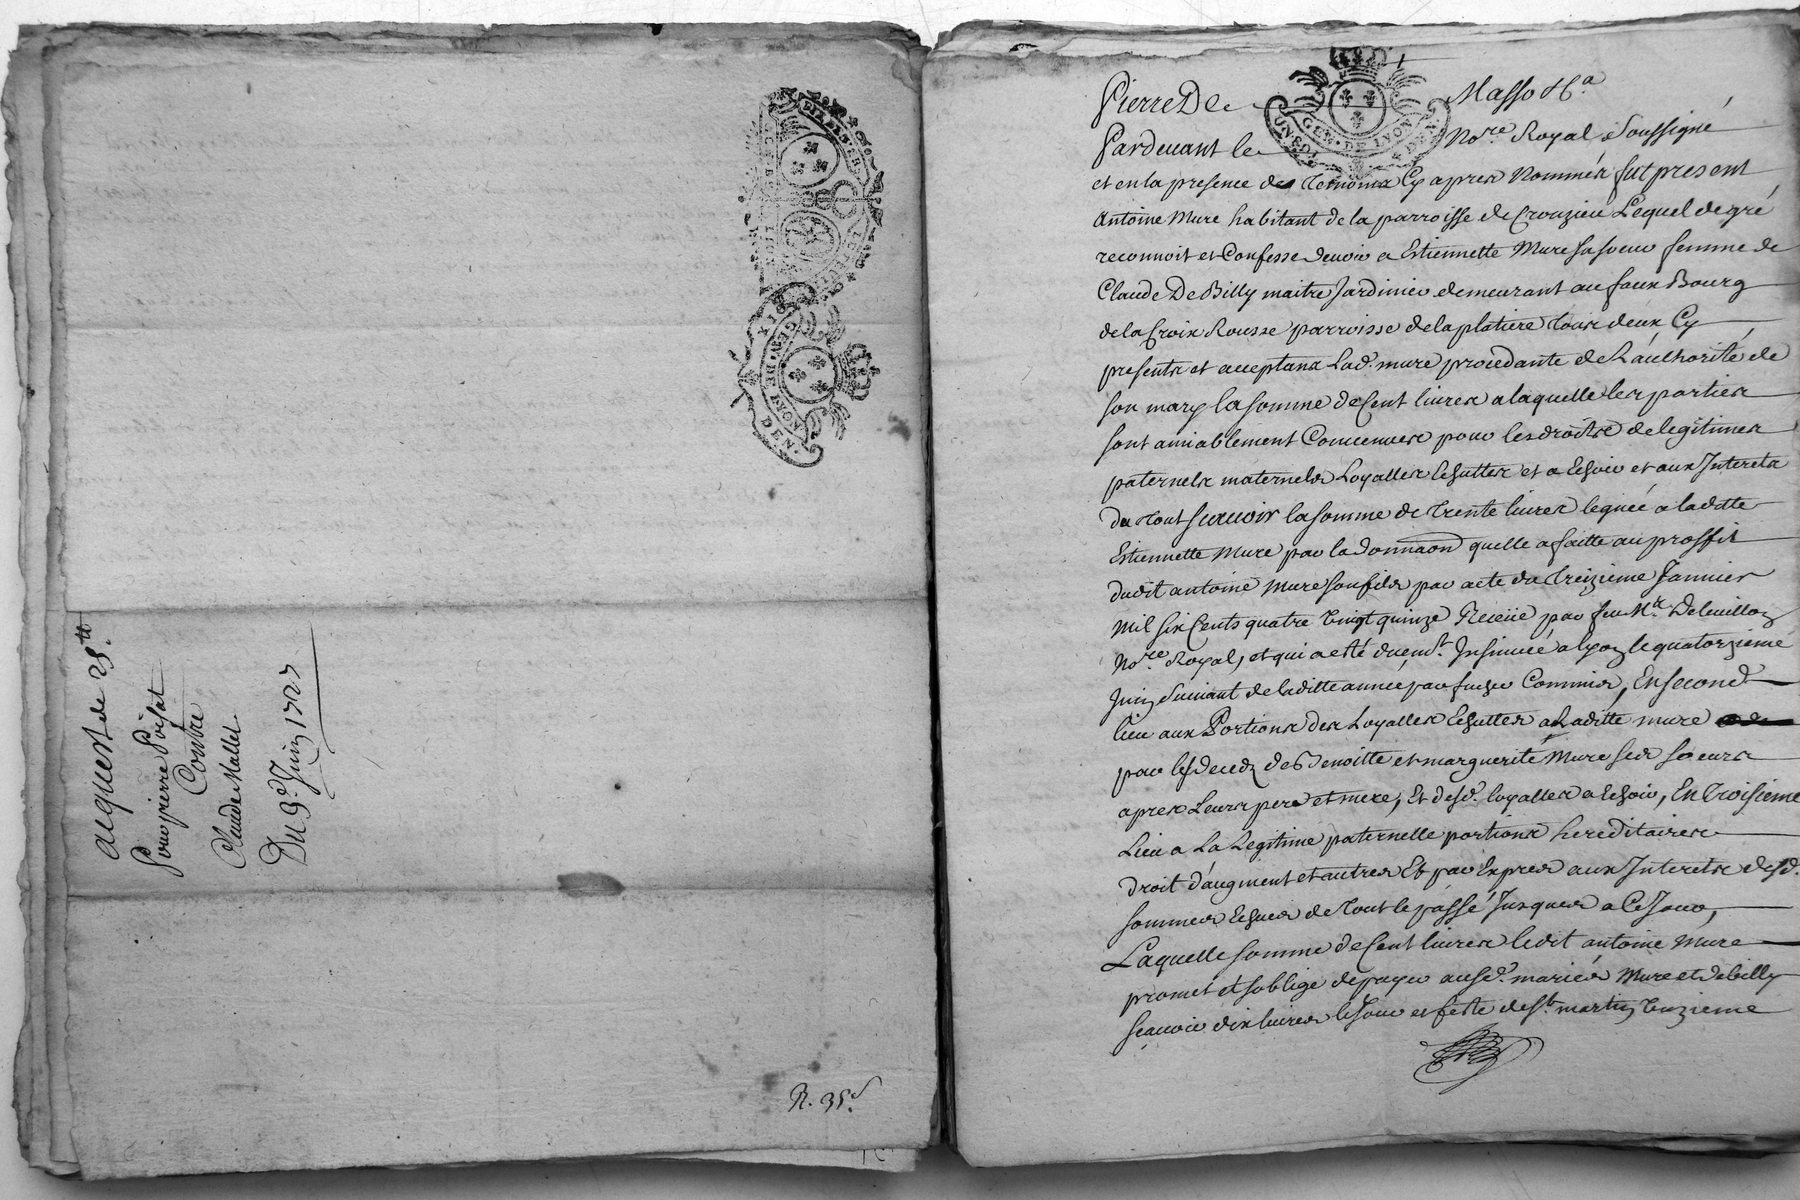 acquest de 25.tt
Pour pierre Poisat
Contre
Claude Mallet
Du 9.e Juin 1727
R. 35.s
GEN. DE LYON
DEN.
Pierre De Masso &c.a
UN SOL GEN. DE LYON & DEN.
Pardeuant le No.re Royal Soussigné
et en la presence des temoins Cy apres Nommés fut present
Antoine Mure habitant de la parroisse de Crouzieu Lequel de gré
reconnoit et Confesse deuoir a Estiennette Mure sa soeur femme de
Claude De Billy maitre Jardinier demeurant au faux Bourg
de la Croix Rousse parroisse de la platiere tous deux Cy
presents et acceptans Lad. mure procedante de L'authorité de
son mary la somme de Cent liures a laquelle les parties
sont amiablement Conuenues pour les droits de legitimes
paternels maternels Loyalles Eschuttes et a Echoir et aux Interets
du tout scauoir la somme de trente liures leguée a laditte
Estiennette Mure par la donnaon quelle a faitte au proffit
dudit antoine Mure son fils par acte du treizieme Januier
Mil six Cents quatre vingt quinze Receüe par feu M.e Deleuilloz
No.re Royal, et qui a esté duem.t Insinuée a lyon le quatorzieme
Juin Suiuant de laditte année par Commis, En second
lieu aux Portions des Loyalles Eschuttes a Laditte mure
par les decedz de Benoitte et marguerite Mure ses soeurs
apres Leurs pere et mere, Et desd. loyalles a Echoir, En troisieme
Lieu a La Legitime paternelle portions hereditaires
droit d'augment et autres Et par Expres aux Interets desd.
sommes Echues de tout le passé Jusques a Ce Jour,
Laquelle somme de Cent liures ledit antoine Mure
promet et s'oblige de payer ausd. mariés Mure et debilly
scauoir dix liures le Jour et feste de St. martin Onzieme